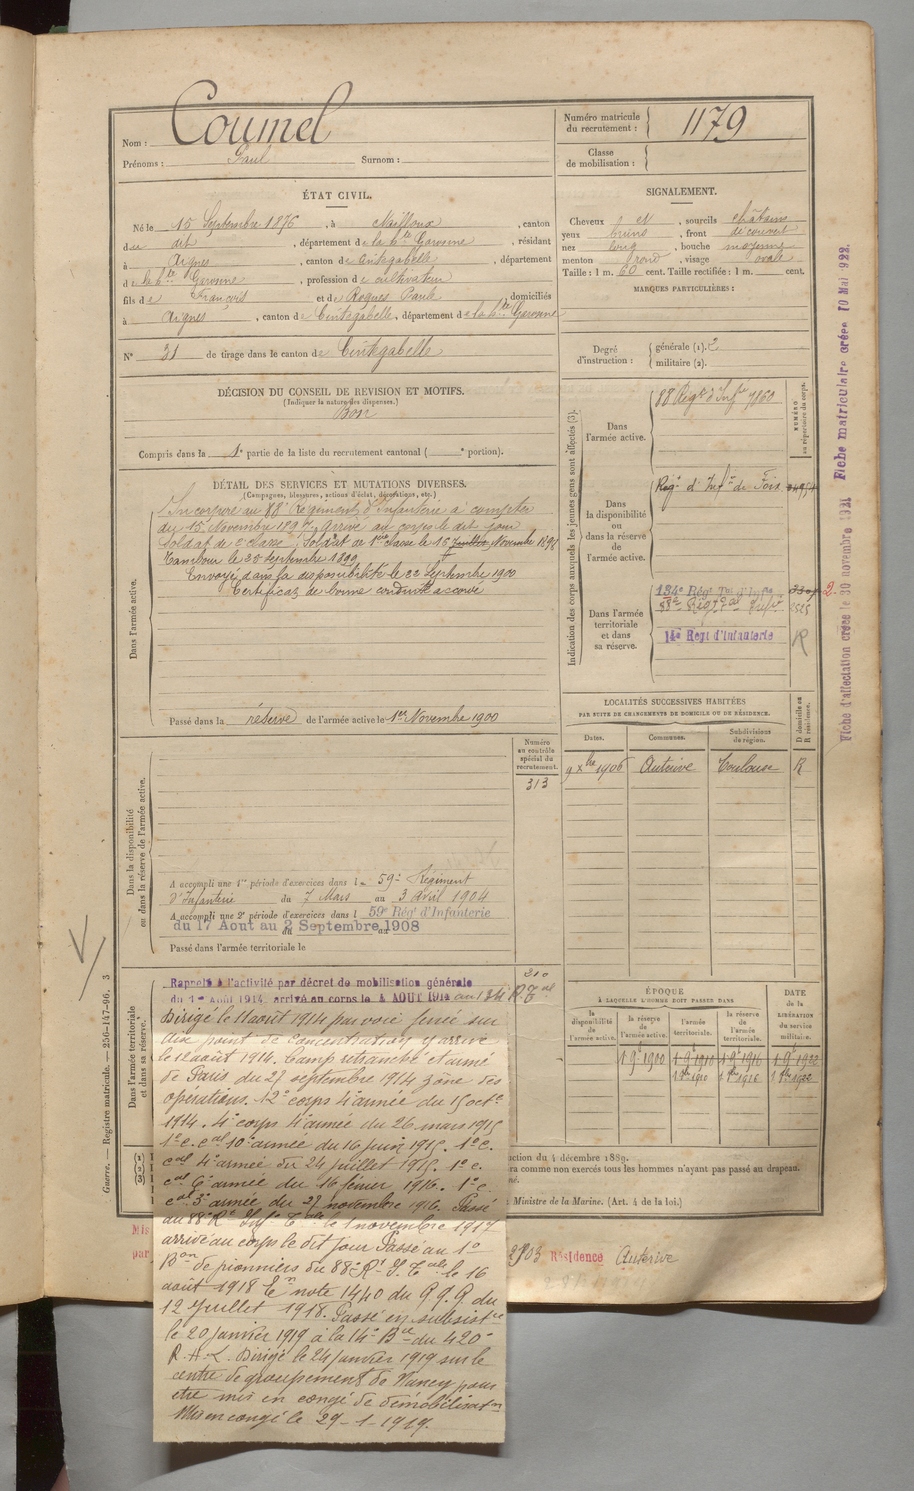 Nom : Coumel
Prénoms : Paul Surnom :
Numéro matricule du recrutement : 1179
Classe de mobilisation :
ÉTAT CIVIL.
Né le 15 Septembre 1876, à Nailloux, canton
de dit, département de la hte Garonne, résidant
à Aignes, canton de Cintegabelle, département
de la hte Garonne, profession de cultivateur
fils de François et de Roques Paule, domiciliés
à Aignes, canton de Cintegabelle, département de la hte Garonne
N° 31 de tirage dans le canton de Cintegabelle
SIGNALEMENT.
Cheveux et, sourcils châtains
yeux bruns, front découvert
nez long, bouche moyenne
menton rond, visage ovale
Taille : 1 m. 60 cent. Taille rectifiée : 1 m. cent.
MARQUES PARTICULIÈRES :
Degré d'instruction : générale (1). 2
militaire (2).
DÉCISION DU CONSEIL DE REVISION ET MOTIFS.
(Indiquer la nature des dispenses.)
Bon
Compris dans la 1e partie de la liste du recrutement cantonal ( e portion).
DÉTAIL DES SERVICES ET MUTATIONS DIVERSES.
(Campagnes, blessures, actions d'éclat, décorations, etc.)
Dans l'armée active.
Incorporé au 88e Régiment d'Infanterie à compter
du 15 Novembre 1897, arrivé au corps le dit jour
Soldat de 2e classe, Soldat de 1ère classe le 16 Juillet Novembre 1898
Tambour le 23 Septembre 1899
Envoyé dans la disponibilité le 22 Septembre 1900
Certificat de bonne conduite accordé
Passé dans la réserve de l'armée active le 1er Novembre 1900
Indication des corps auxquels les jeunes gens sont affectés (3).
NUMÉRO au répertoire du corps.
Dans l'armée active.
88 Régt d'Infie 7860
Dans la disponibilité ou dans la réserve de l'armée active.
Régt d'Infie de Foix
Dans l'armée territoriale et dans sa réserve.
134e Régt Tal d'Infie
88e Régt Tal Infie
14e Regt d'Infanterie R
2
Fiche d'affectation créée le 30 novembre 1921 Fiche matriculaire créée 10 Mai 922.
LOCALITÉS SUCCESSIVES HABITÉES
PAR SUITE DE CHANGEMENTS DE DOMICILE OU DE RÉSIDENCE.
Dates. Communes. Subdivisions de région. D domicile ou R résidence.
9 Xbre 1906 Auterive Toulouse R
Dans la disponibilité ou dans la réserve de l'armée active.
Numéro au contrôle spécial du recrutement.
313
A accompli une 1re période d'exercices dans le 59e Régiment
d'Infanterie du 7 Mars au 3 avril 1904
A accompli une 2e période d'exercices dans l 59e Rég' d'Infanterie
du 17 Aout au 2 Septembre 1908
Passé dans l'armée territoriale le
Dans l'armée territoriale et dans sa réserve.
210
Rappelé à l'activité par décret de mobilisation générale
du 1er Août 1914, arrivé au corps le 4 AOUT 1914 au 134 R. Tal
Dirigé le 11 aout 1914 par voie ferrée sur
un point de concentration y arrivé
le 12 aout 1914. Camp retranché et armé
de Paris du 27 septembre 1914 zone des
opérations. 12e corps 4e armée du 15 octe
1914. 4e corps 4e armée du 26 mars 1915
1e c. cal 10e armée du 16 juin 1915. 1e c.
cal 4e armée du 24 juillet 1915. 1e c.
cal 6e armée du 16 février 1916. 1e c.
cal 3e armée du 27 novembre 1916. Passé
au 88e Rt Infie Tale le 1 novembre 1917
arrivé au corps le dit jour Passé au 1e
Bon de pionniers du 88e Rt I. Tale le 16
août 1918 En note 1440 du G.Q.G du
12 Juillet 1918. Passé en subsistce
le 20 Janvier 1919 à la 14e Bie du 420e
R.A.L. Dirigé le 24 Janvier 1919 sur le
centre de groupement de Nancy pour
etre mis en congé de démobilisatn
Mis en congé le 29-1-1919.
ÉPOQUE
À LAQUELLE L'HOMME DOIT PASSER DANS
la disponibilité de l'armée active. la réserve de l'armée active. l'armée territoriale. la réserve de l'armée territoriale.
DATE de la LIBÉRATION du service militaire.
1 9e 1900 1 9e 1910 1 9e 1916 1 9e 1922
1 8bre 1910 1 8bre 1916 1 8bre 1922
ction du 4 décembre 1889.
ra comme non exercés tous les hommes n'ayant pas passé au drapeau.
Ministre de la Marine. (Art. 4 de la loi.)
Mis
par
2903 Résidence Auterive
Guerre. — Registre matricule. — 256-147-96. 3